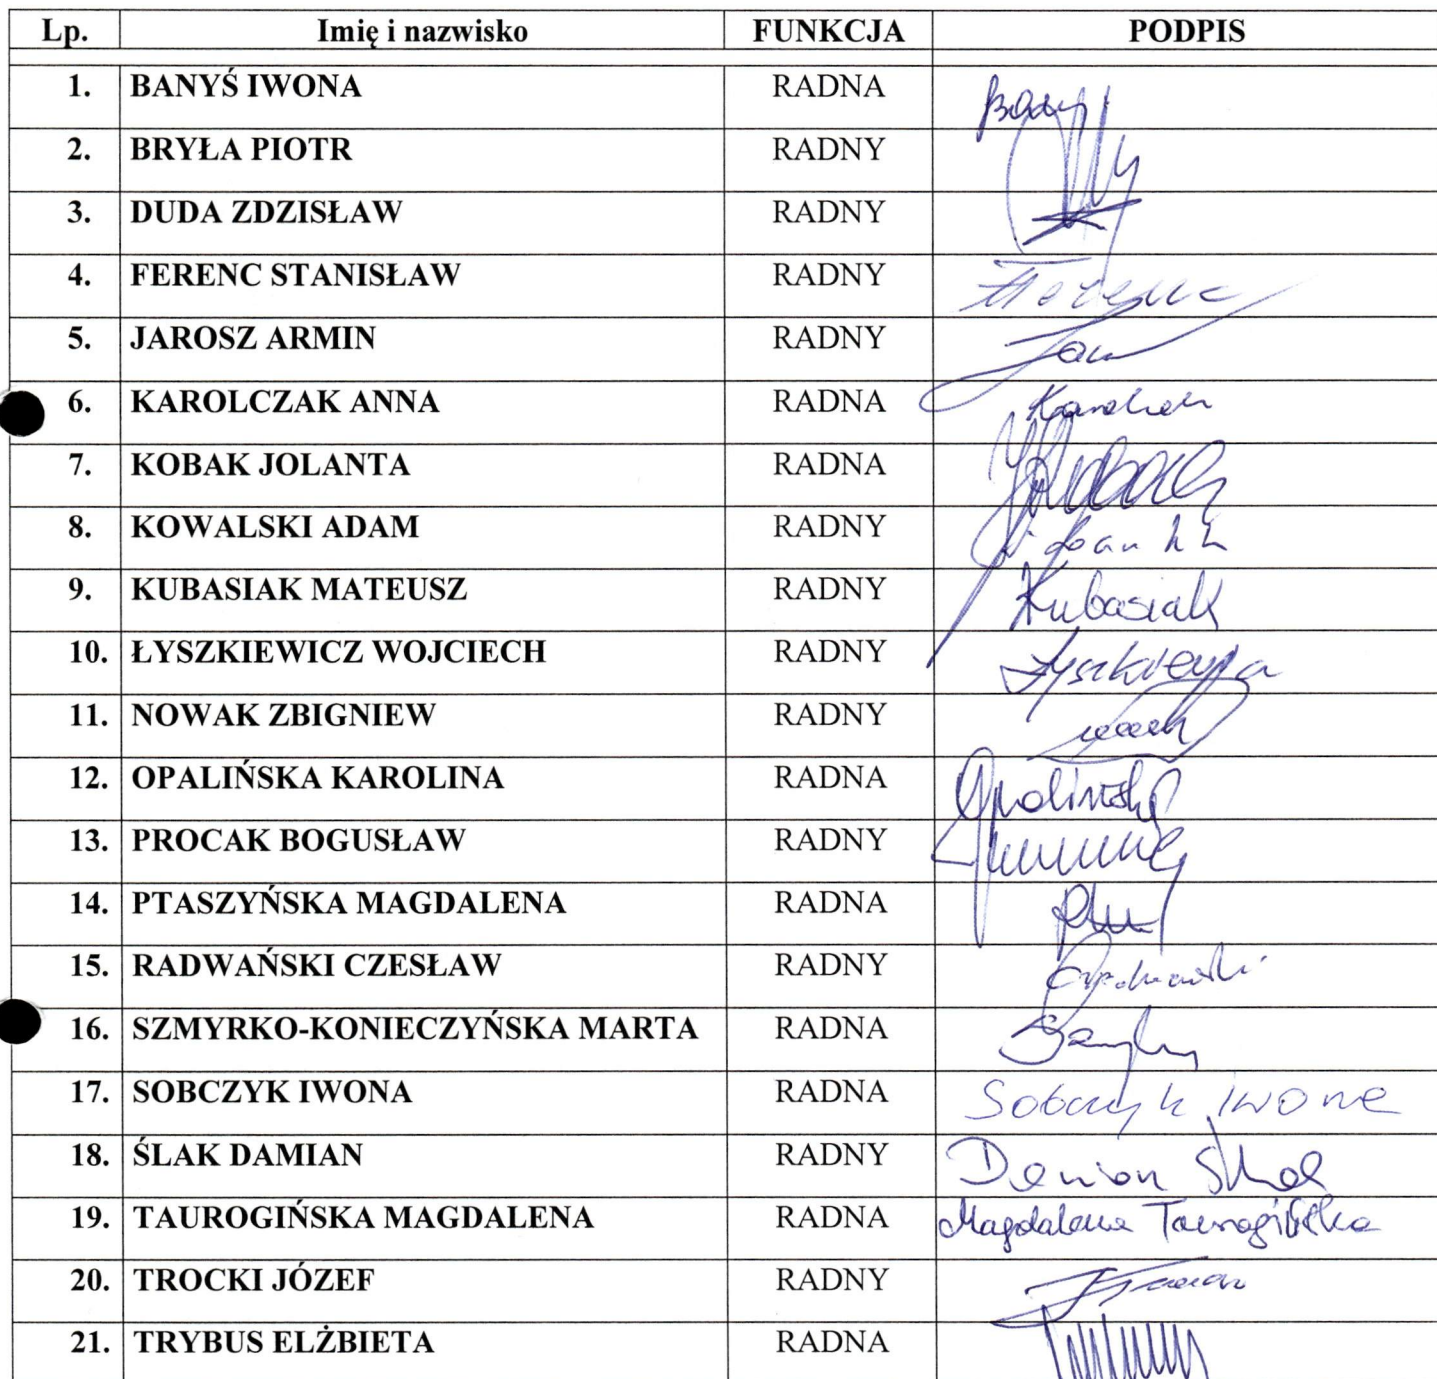 Lp. Imię i nazwisko FUNKCJA PODPIS
1. BANYŚ IWONA RADNA
2. BRYŁA PIOTR RADNY
3. DUDA ZDZISŁAW RADNY
4. FERENC STANISŁAW RADNY
5. JAROSZ ARMIN RADNY
6. KAROLCZAK ANNA RADNA
7. KOBAK JOLANTA RADNA
8. KOWALSKI ADAM RADNY
9. KUBASIAK MATEUSZ RADNY Kubasiak
10. ŁYSZKIEWICZ WOJCIECH RADNY
11. NOWAK ZBIGNIEW RADNY
12. OPALIŃSKA KAROLINA RADNA Opalińska
13. PROCAK BOGUSŁAW RADNY
14. PTASZYŃSKA MAGDALENA RADNA
15. RADWAŃSKI CZESŁAW RADNY
16. SZMYRKO-KONIECZYŃSKA MARTA RADNA
17. SOBCZYK IWONA RADNA Sobczyk Iwona
18. ŚLAK DAMIAN RADNY Damian Ślak
19. TAUROGIŃSKA MAGDALENA RADNA Magdalena Taurogińska
20. TROCKI JÓZEF RADNY
21. TRYBUS ELŻBIETA RADNA